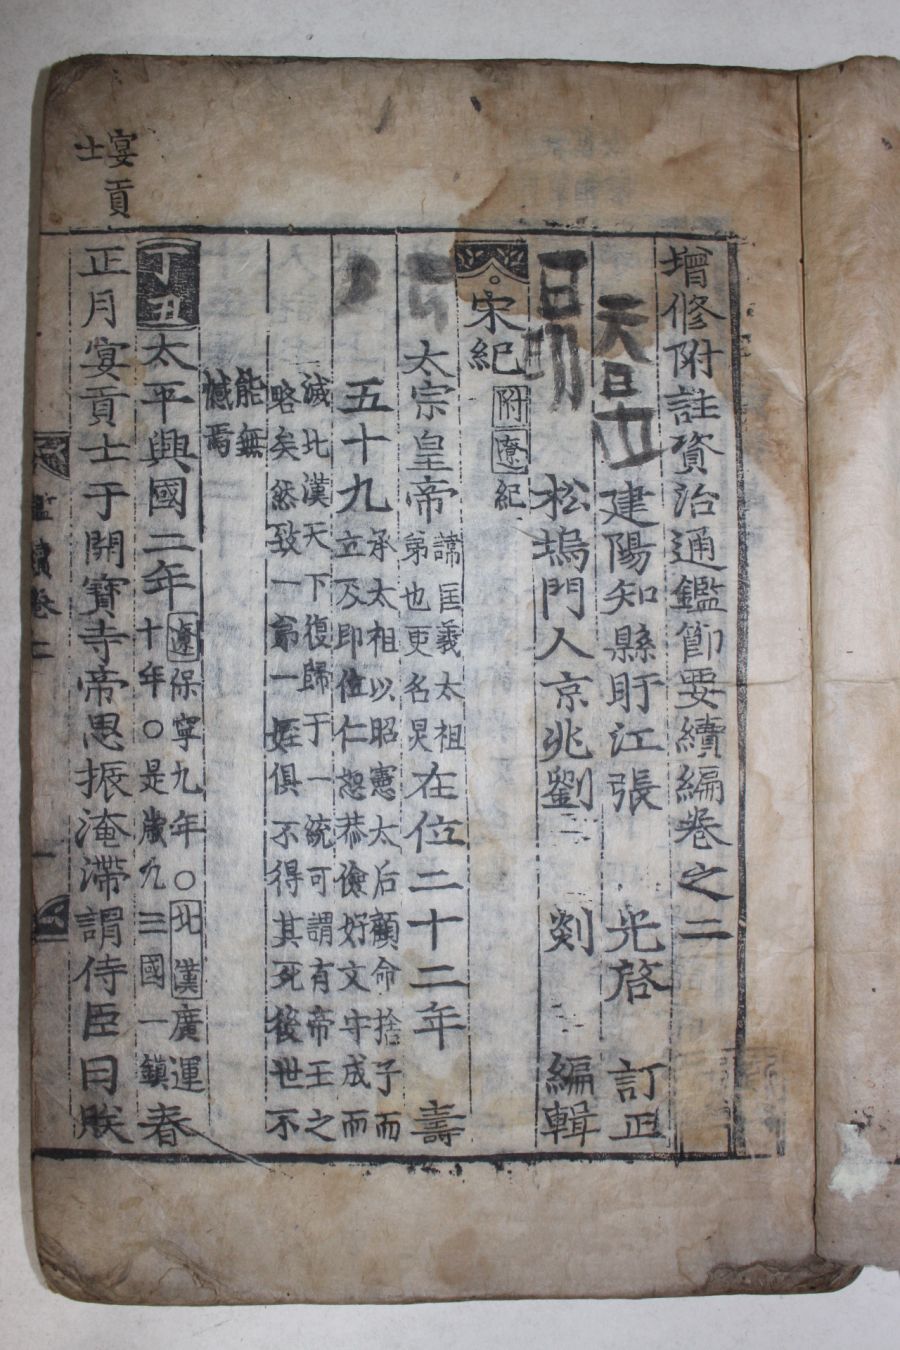 增修附註資治通鑑節要續編卷之二
建陽知縣盱江張 光啓 訂正
松塢門人京兆劉 剡 編輯
宋紀 附遼紀
太宗皇帝 諱匡義太祖弟也更名炅 在位二十二年 壽
五十九 承太祖以昭憲太后顧命捨子而立及即位仁恕恭儉好文守成而
滅北漢天下復歸于一統可謂有帝王之略矣然致一弟一姪俱不得其死後世不
能無憾焉
丁丑 太平興國二年 遼保寧九年○北漢廣運十年○是歲九三國一鎮 春
正月宴貢士于開寶寺帝思振淹滯謂侍臣曰朕
宴貢
士
鑑續卷二